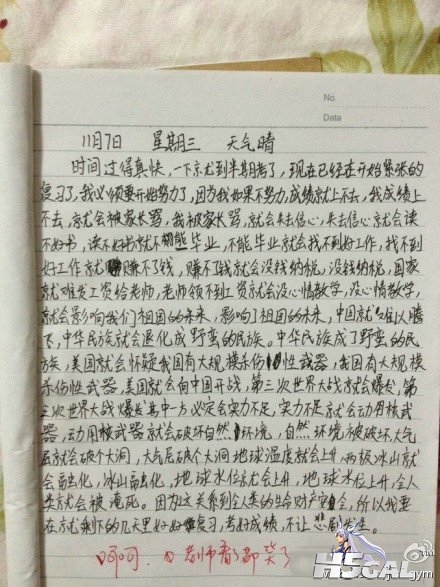 No.
Data
11月7日 星期三 天气晴
时间过得真快，一下就到半期考了，现在已经走开始紧张的
复习了，我必须要开始努力了，因为我如果不努力，成绩就上不去，我成绩上
不去，就会被家长骂，我被家长骂，就会失去信心，失去信心就会读
不好书，读不好书就不能毕业，不能毕业就会找不到好工作，找不到
好工作就赚不了钱，赚不了钱就会没钱纳税，没钱纳税，国家
就难发工资给老师，老师领不到工资就会没心情教学，没心情教学，
就会影响我们祖国的未来，影响了祖国的未来，中国就难以腾
飞，中华民族就会退化成野蛮的民族。中华民族成了野蛮的民
族，美国就会怀疑我国有大规模杀伤性武器，我国有大规模
杀伤性武器，美国就会向中国开战，第三次世界大战就会爆发，第
三次世界大战爆发其中一方必定会实力不足，实力不足就会动用核武
器，动用核武器就会破坏自然环境，自然环境被破坏，大气
层就会破个大洞，大气层破个大洞地球温度就会上升，两极冰山就
会融化，冰山融化，地球水位就会上升，地球水位上升，全人
类就会被淹死。因为这关系到全人类的生命财产安全，所以我要
在就剩下的几天里好好复习，考好成绩，不让悲剧发生。
呵呵.
都笑了
HSGAL
gym